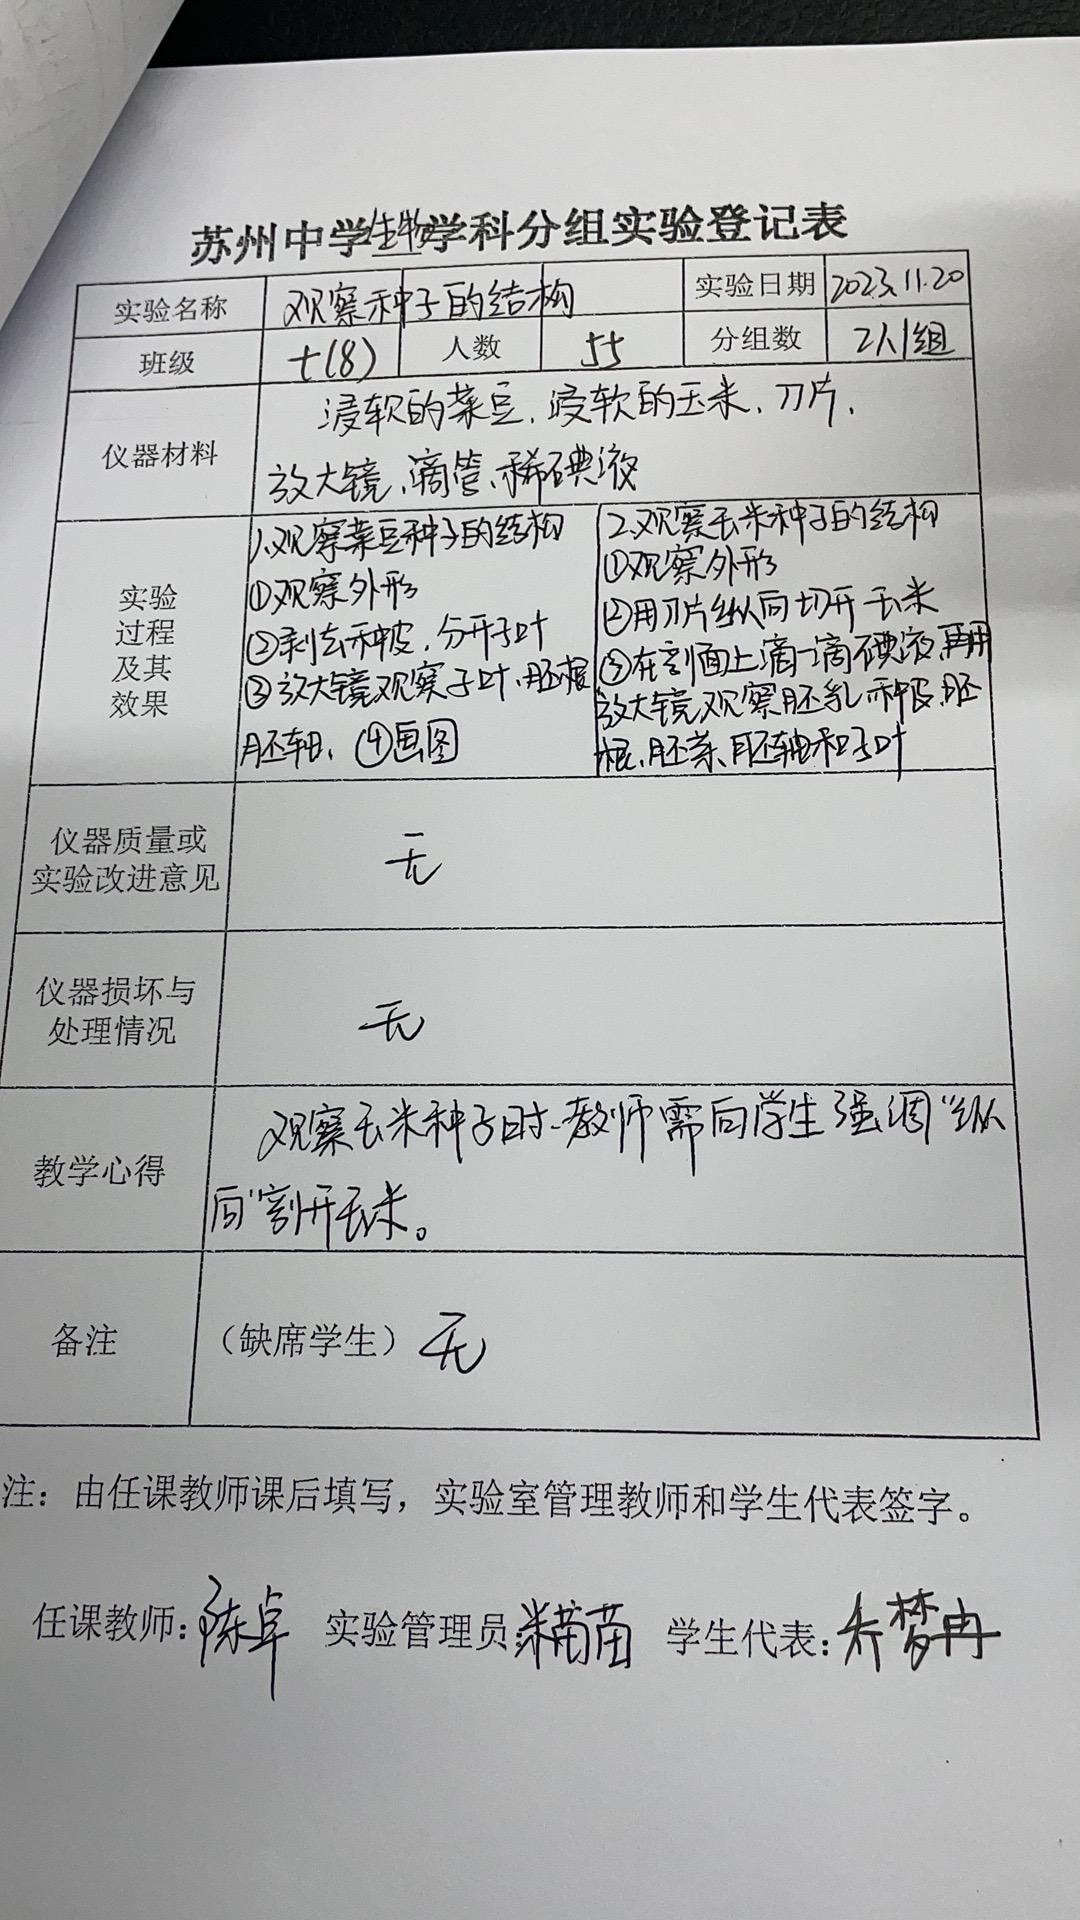 苏州中学生物学科分组实验登记表
实验名称 观察种子的结构 实验日期 2023.11.20
班级 七(8) 人数 55 分组数 2人1组
仪器材料
浸软的菜豆、浸软的玉米、刀片、
放大镜、滴管、稀碘液
实验
过程
及其
效果
1.观察菜豆种子的结构
①观察外形
②剥去种皮，分开子叶
③放大镜观察子叶、胚根
胚轴、④画图
2.观察玉米种子的结构
①观察外形
②用刀片纵向切开玉米
③在剖面上滴一滴碘液，再用
放大镜观察胚乳、种皮、胚
根、胚芽、胚轴和子叶
仪器质量或
实验改进意见
无
仪器损坏与
处理情况
无
教学心得
观察玉米种子时、教师需向学生强调“纵
向”割开玉米。
备注
（缺席学生）无
注：由任课教师课后填写，实验室管理教师和学生代表签字。
任课教师:陈卓 实验管理员:苗苗 学生代表:梦冉